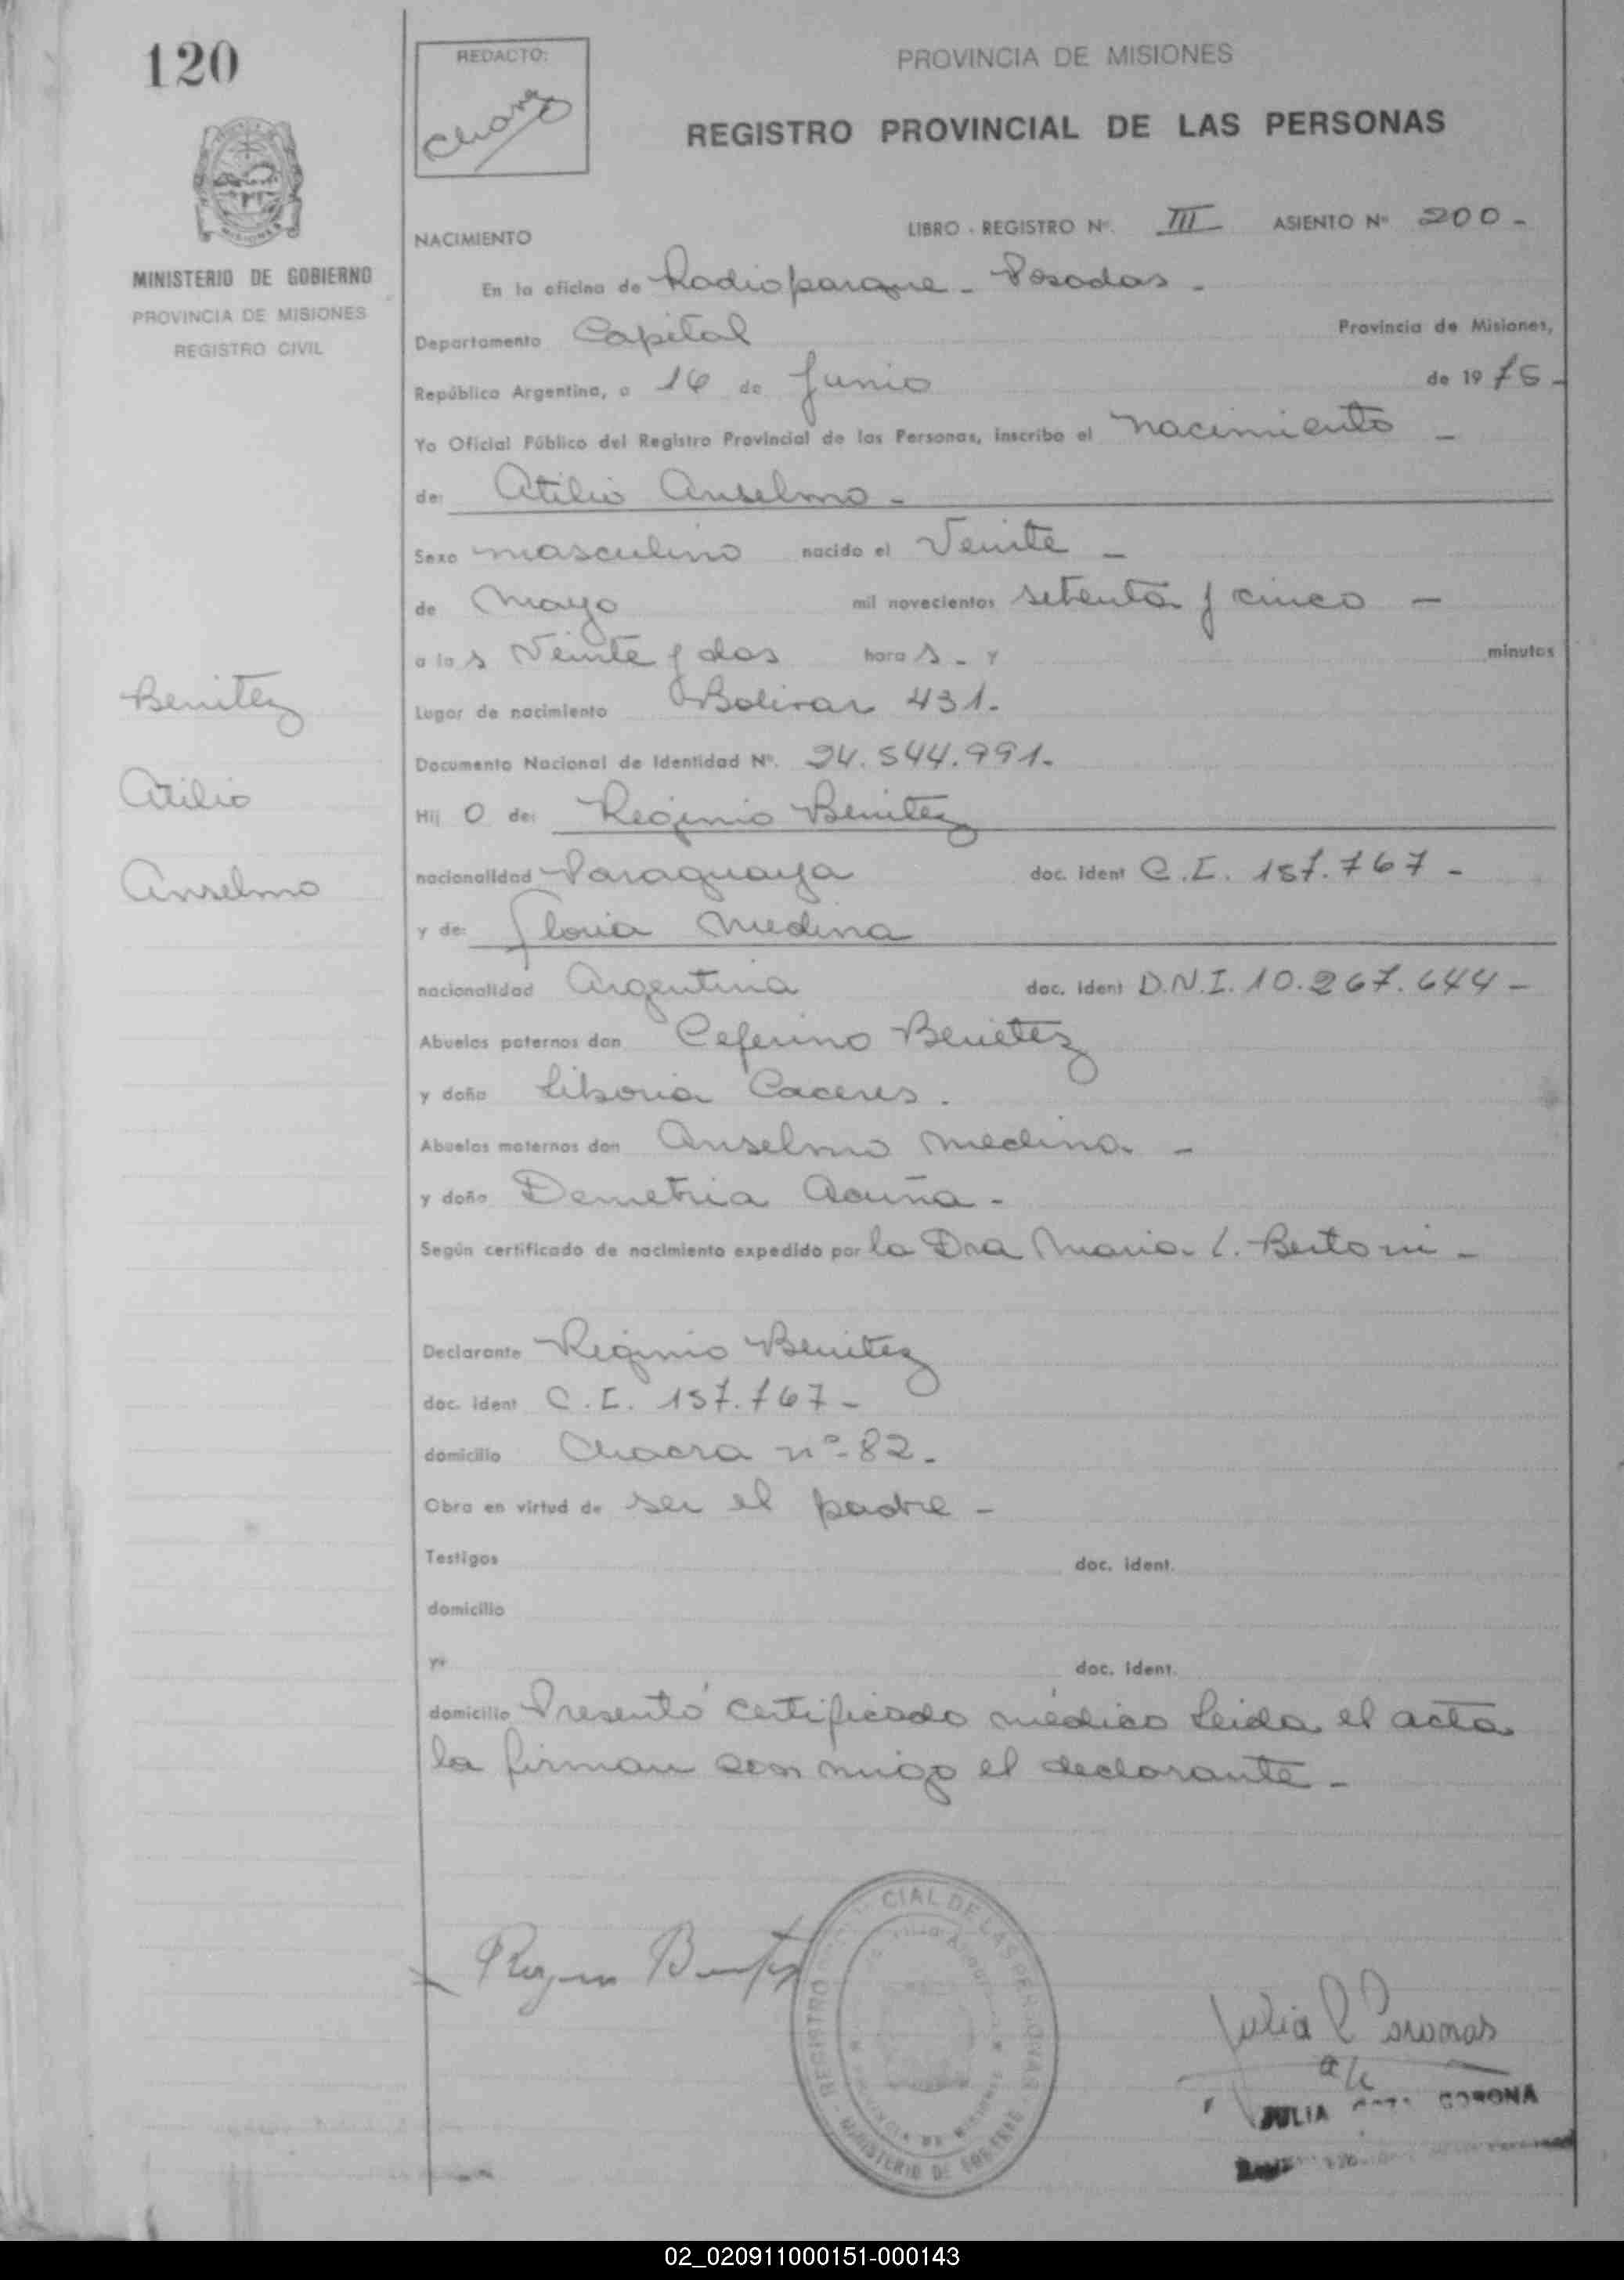 120
REDACTO:
PROVINCIA DE MISIONES
REGISTRO PROVINCIAL DE LAS PERSONAS
MISIONES
MINISTERIO DE GOBIERNO
PROVINCIA DE MISIONES
REGISTRO CIVIL
NACIMIENTO
LIBRO - REGISTRO Nº. III ASIENTO Nº 200 -
En la oficina de Radioparque - Posadas -
Departamento Capital Provincia de Misiones,
República Argentina, a 16 de Junio de 1975 -
Yo Oficial Público del Registro Provincial de las Personas, inscribo el nacimiento -
de: Atilio Anselmo -
Sexo masculino nacido el Veinte -
de Mayo mil novecientos setenta y cinco -
a las Veinte y dos horas - y minutos
Lugar de nacimiento Bolivar 431.
Documento Nacional de Identidad Nº. 24.544.991.
Hijo de: Reginio Benitez
nacionalidad Paraguaya doc. ident C.I. 157.767 -
y de: Gloria Medina
nacionalidad Argentina doc. ident D.N.I. 10.267.644 -
Abuelos paternos don Ceferino Benitez
y doña Liboria Caceres.
Abuelos maternos don Anselmo Medina -
y doña Demetria Acuña -
Según certificado de nacimiento expedido por la Dra Maria L. Bertoni -
Declarante Reginio Benitez
doc. ident C.I. 157.767 -
domicilio Chacra nº 82.
Obra en virtud de ser el padre -
Testigos doc. ident.
domicilio
y: doc. ident.
domicilio Presentó certificado médico Leida el acta
la firman conmigo el declarante -
Benitez
Atilio
Anselmo
REGISTRO CIAL DE LAS PERSONAS
MINISTERIO DE GOBIERNO
PROVINCIA DE MISIONES
Julia Coronas
a/c
JULIA CORONA
02_020911000151-000143